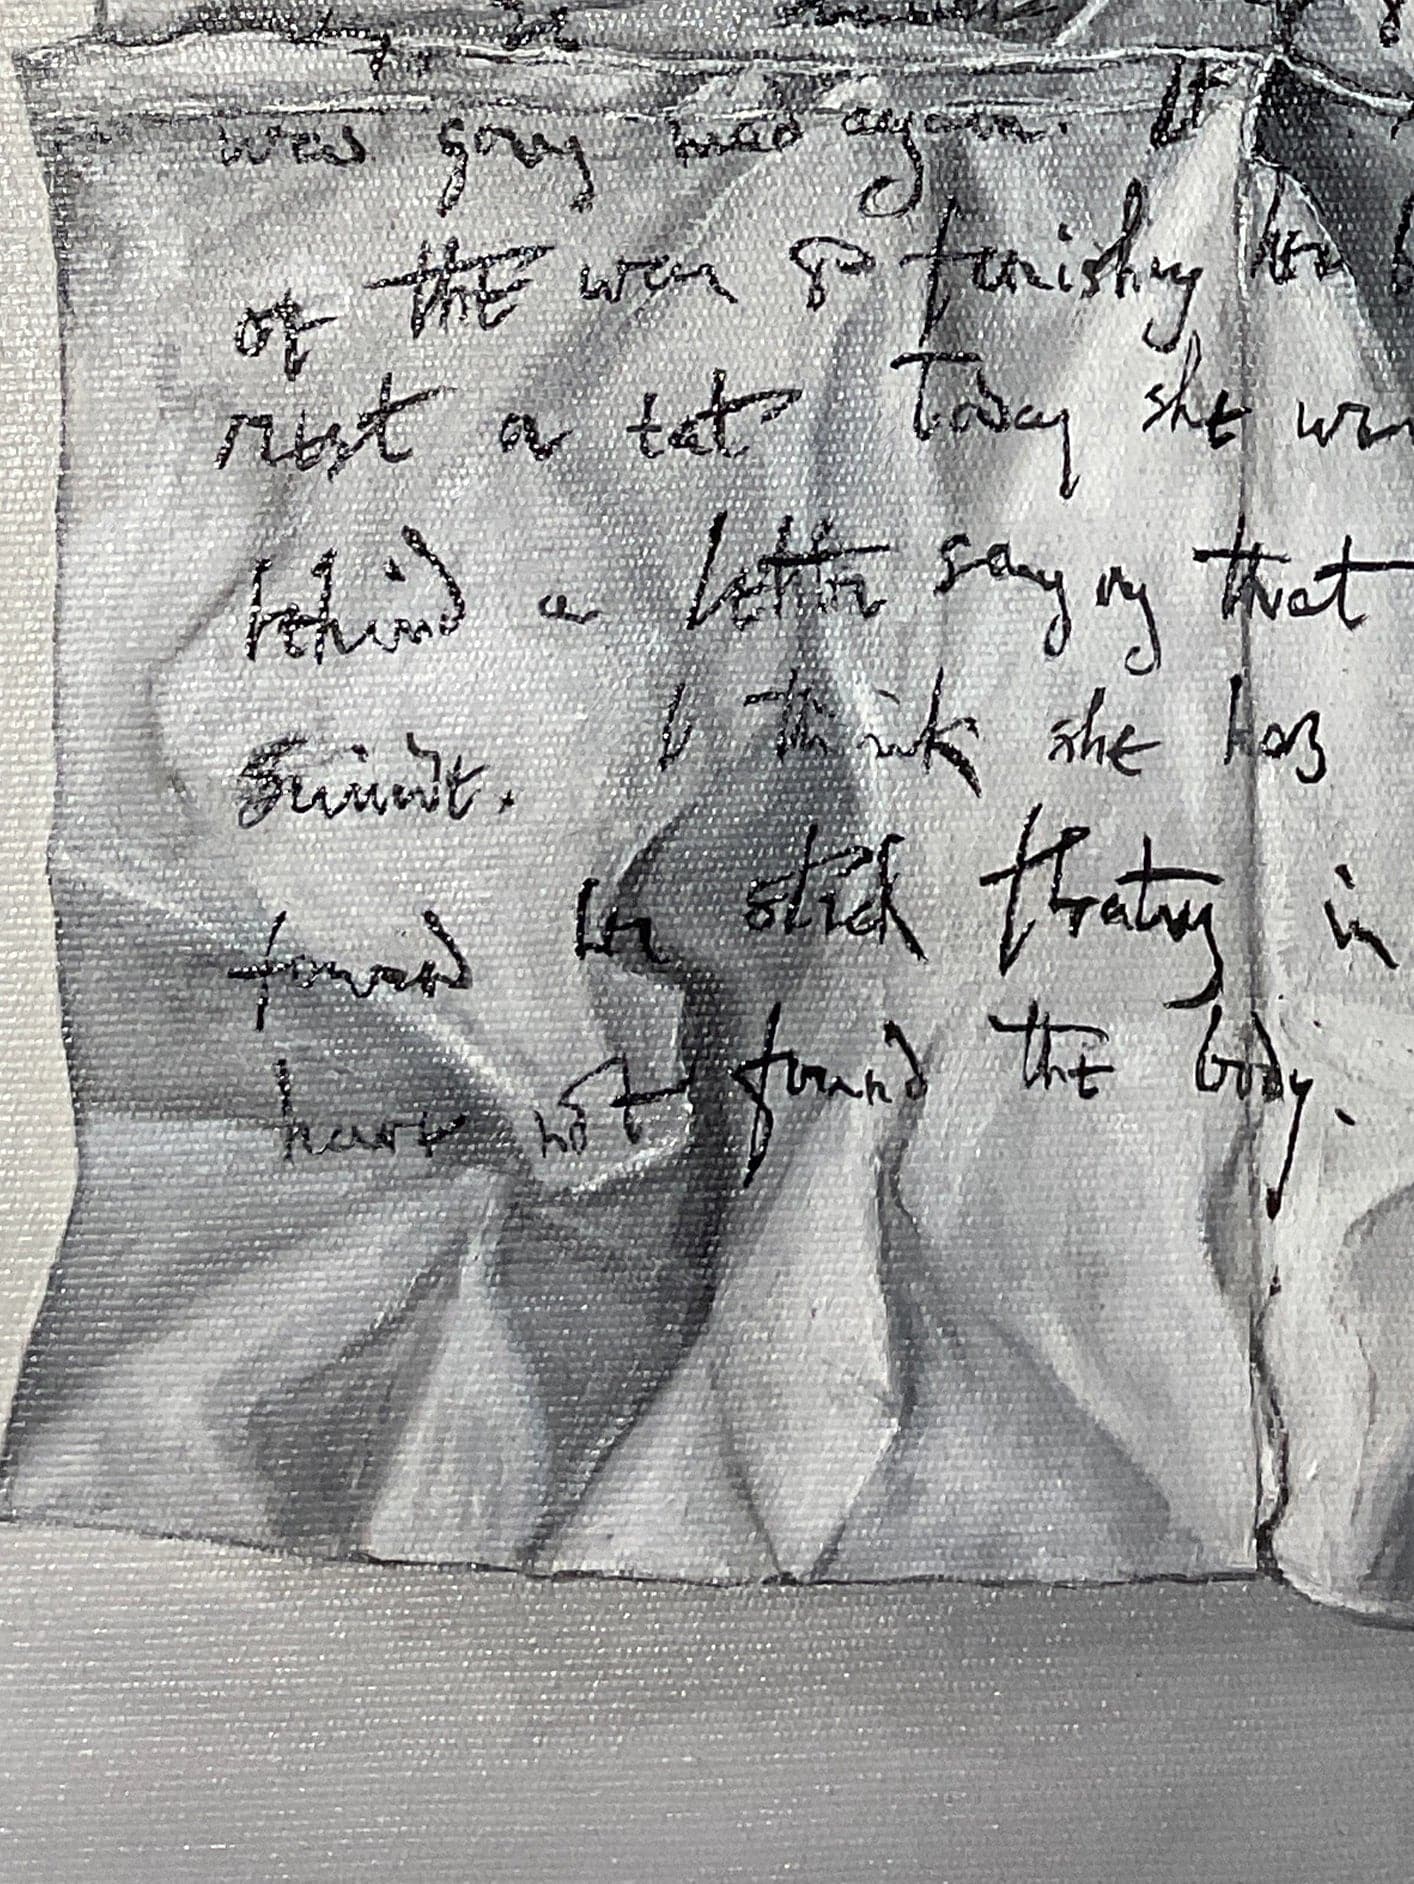 was going mad again. It
of the war & finishing her b
rest or eat Today she wen
behind a letter saying that
suicide. I think she has
found her stick floating in
have not found the body.